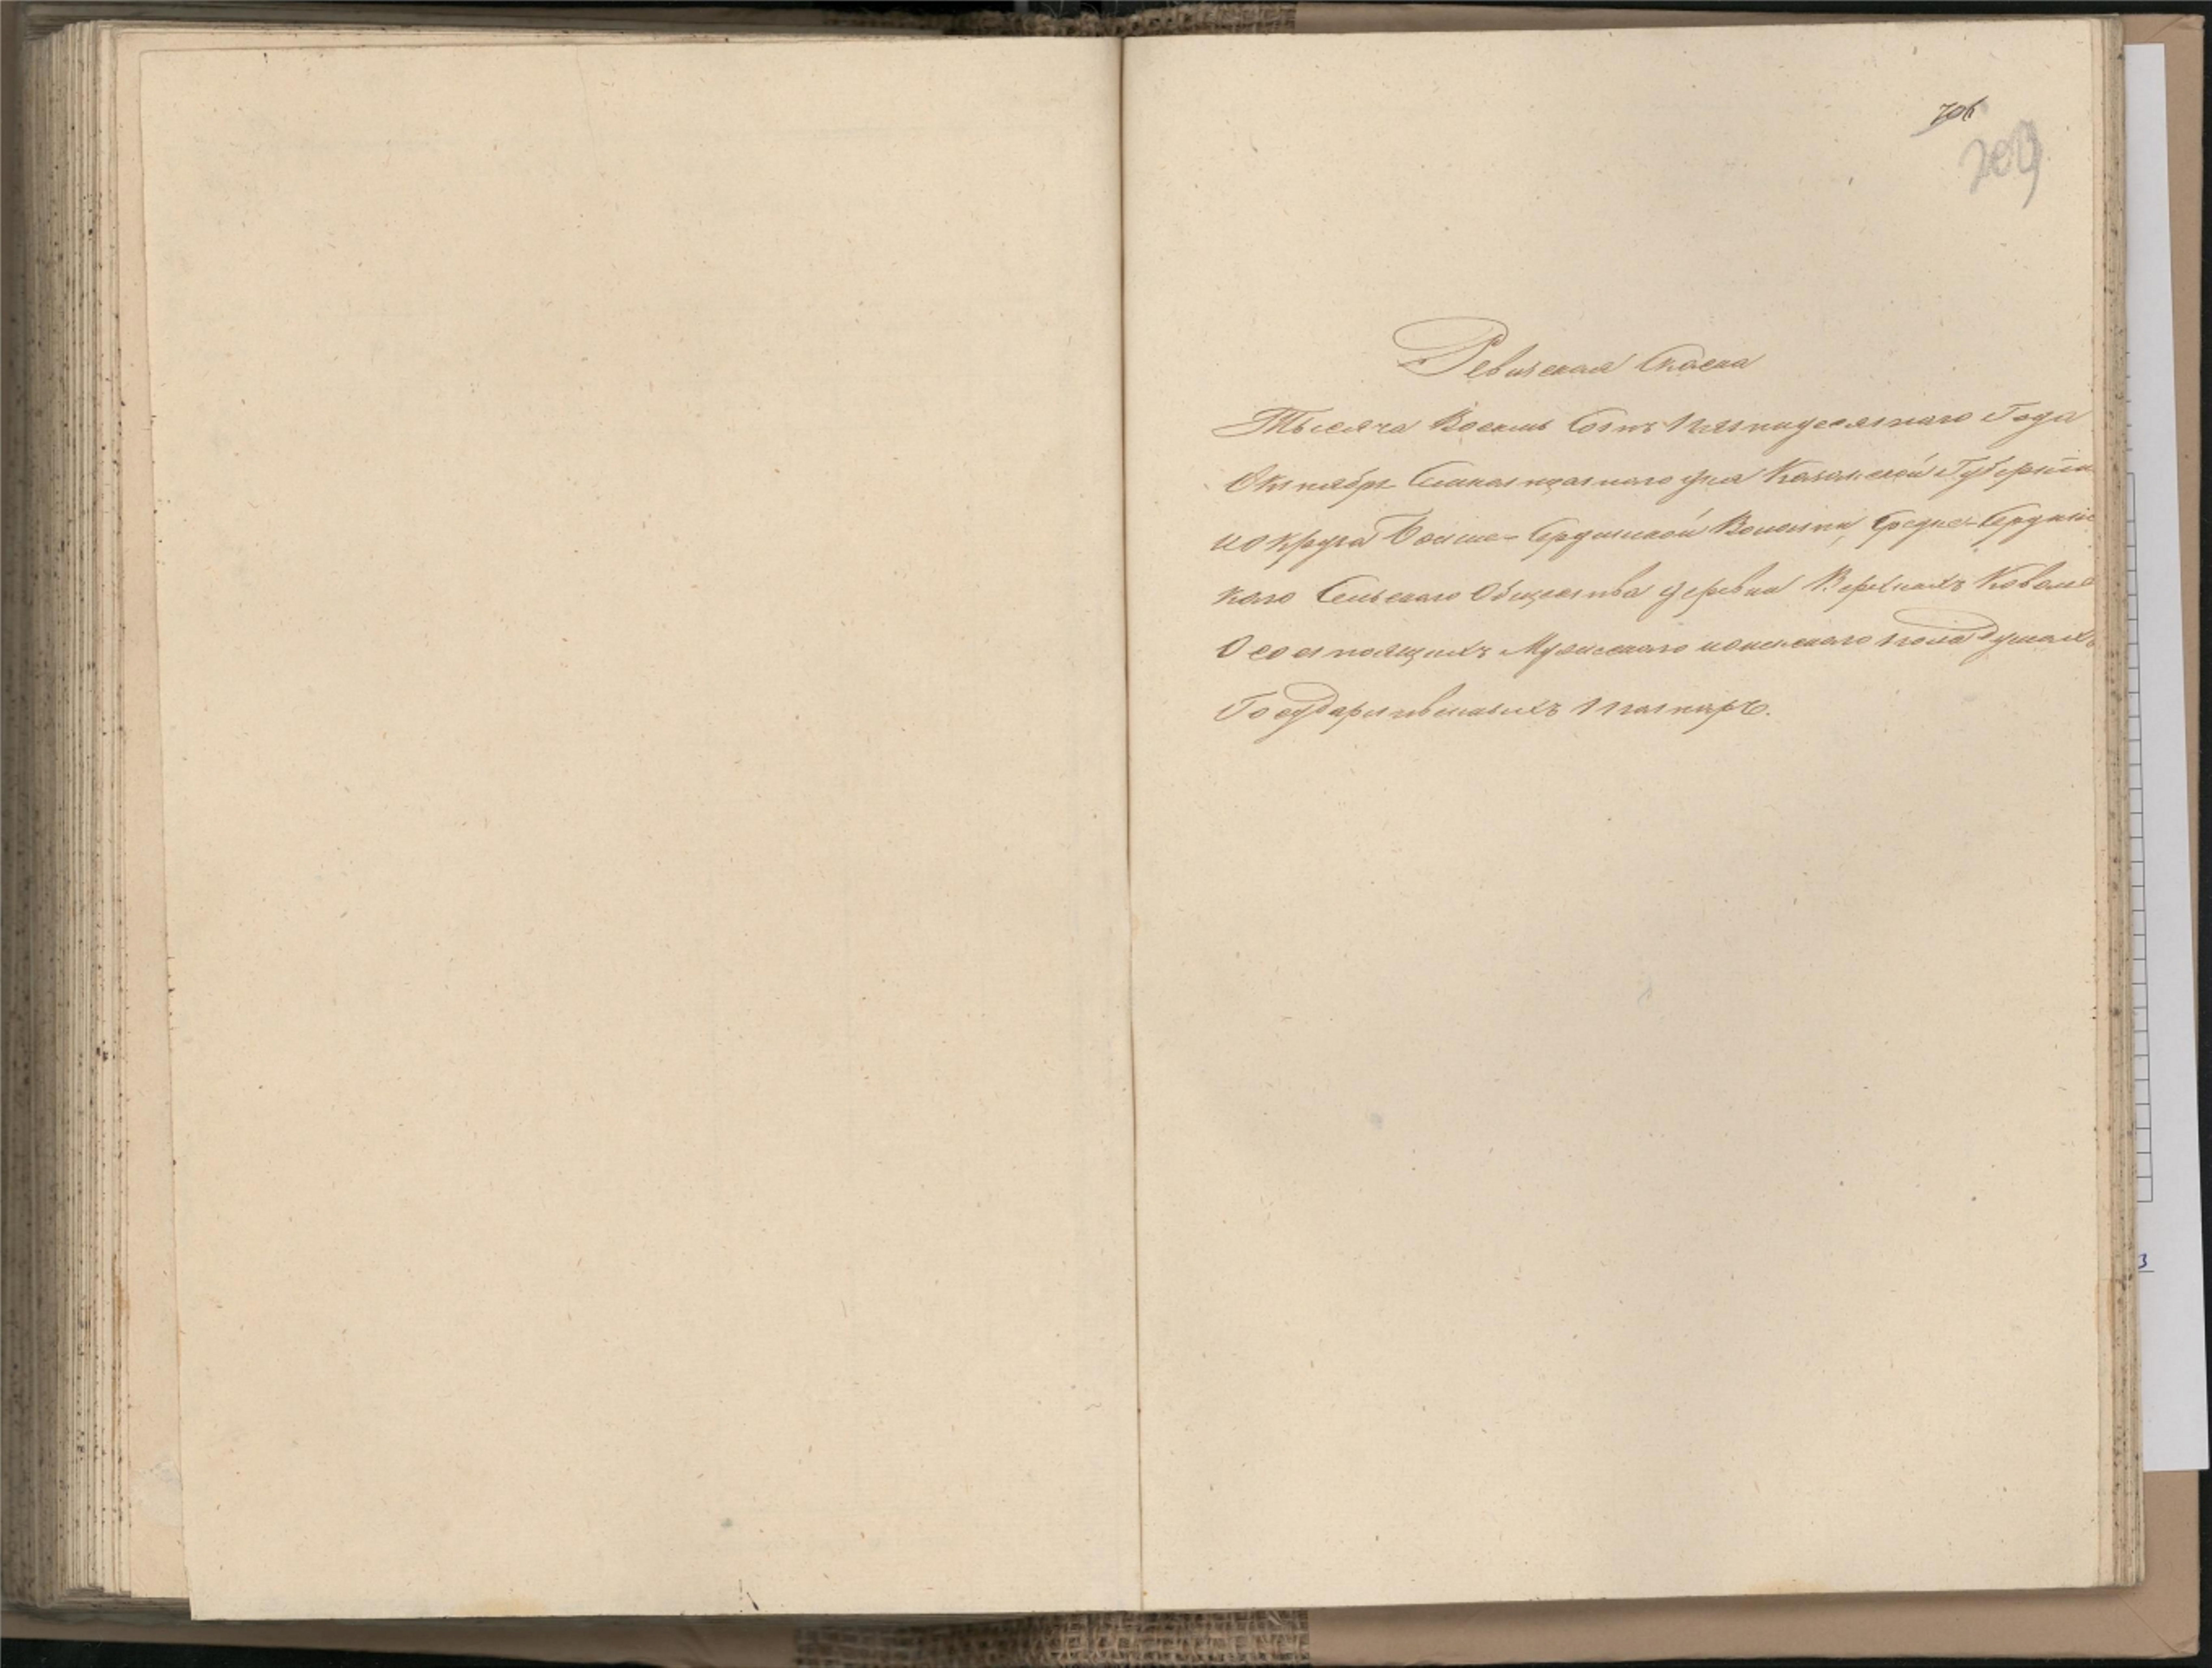 706
209
Ревизская Скаска
Тысяча Восемь Сотъ Пятидесятаго Года
Октября дня Казанской Губернiи
ио Круга Больше-Сердинской Волости, Средне-Сердинс
каго Сельскаго Общества деревни Верхнихъ Ковале
О состоящихъ Мужескаго иженскаго пола душахъ
Государственныхъ Татаръ.
3